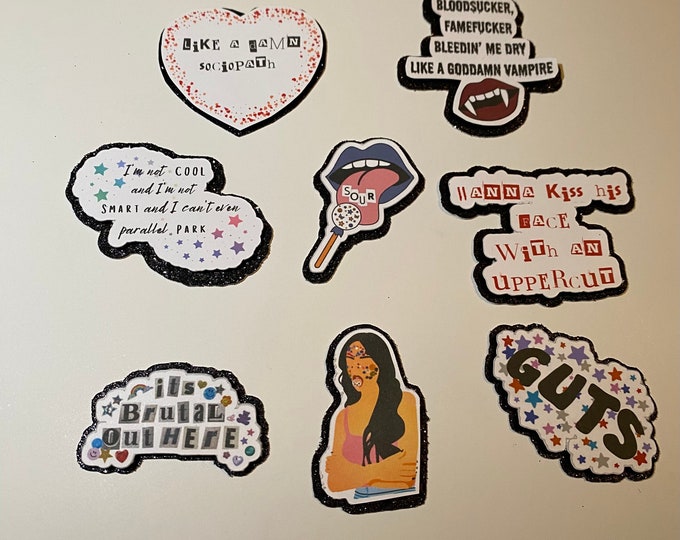 LIKE A DAMN
SOCIOPATH
BLOOD$UCKER,
FAMEFUCKER
BLEEDIN' ME DRY
LIKE A GODDAMN VAMPIRE
I'm not COOL
and I'm not
SMART and I can't even
parallel PARK
SOUR
WANNA Kiss his
FACE
With AN
UPPERCUT
its
Brutal
Out HERE
GUTS